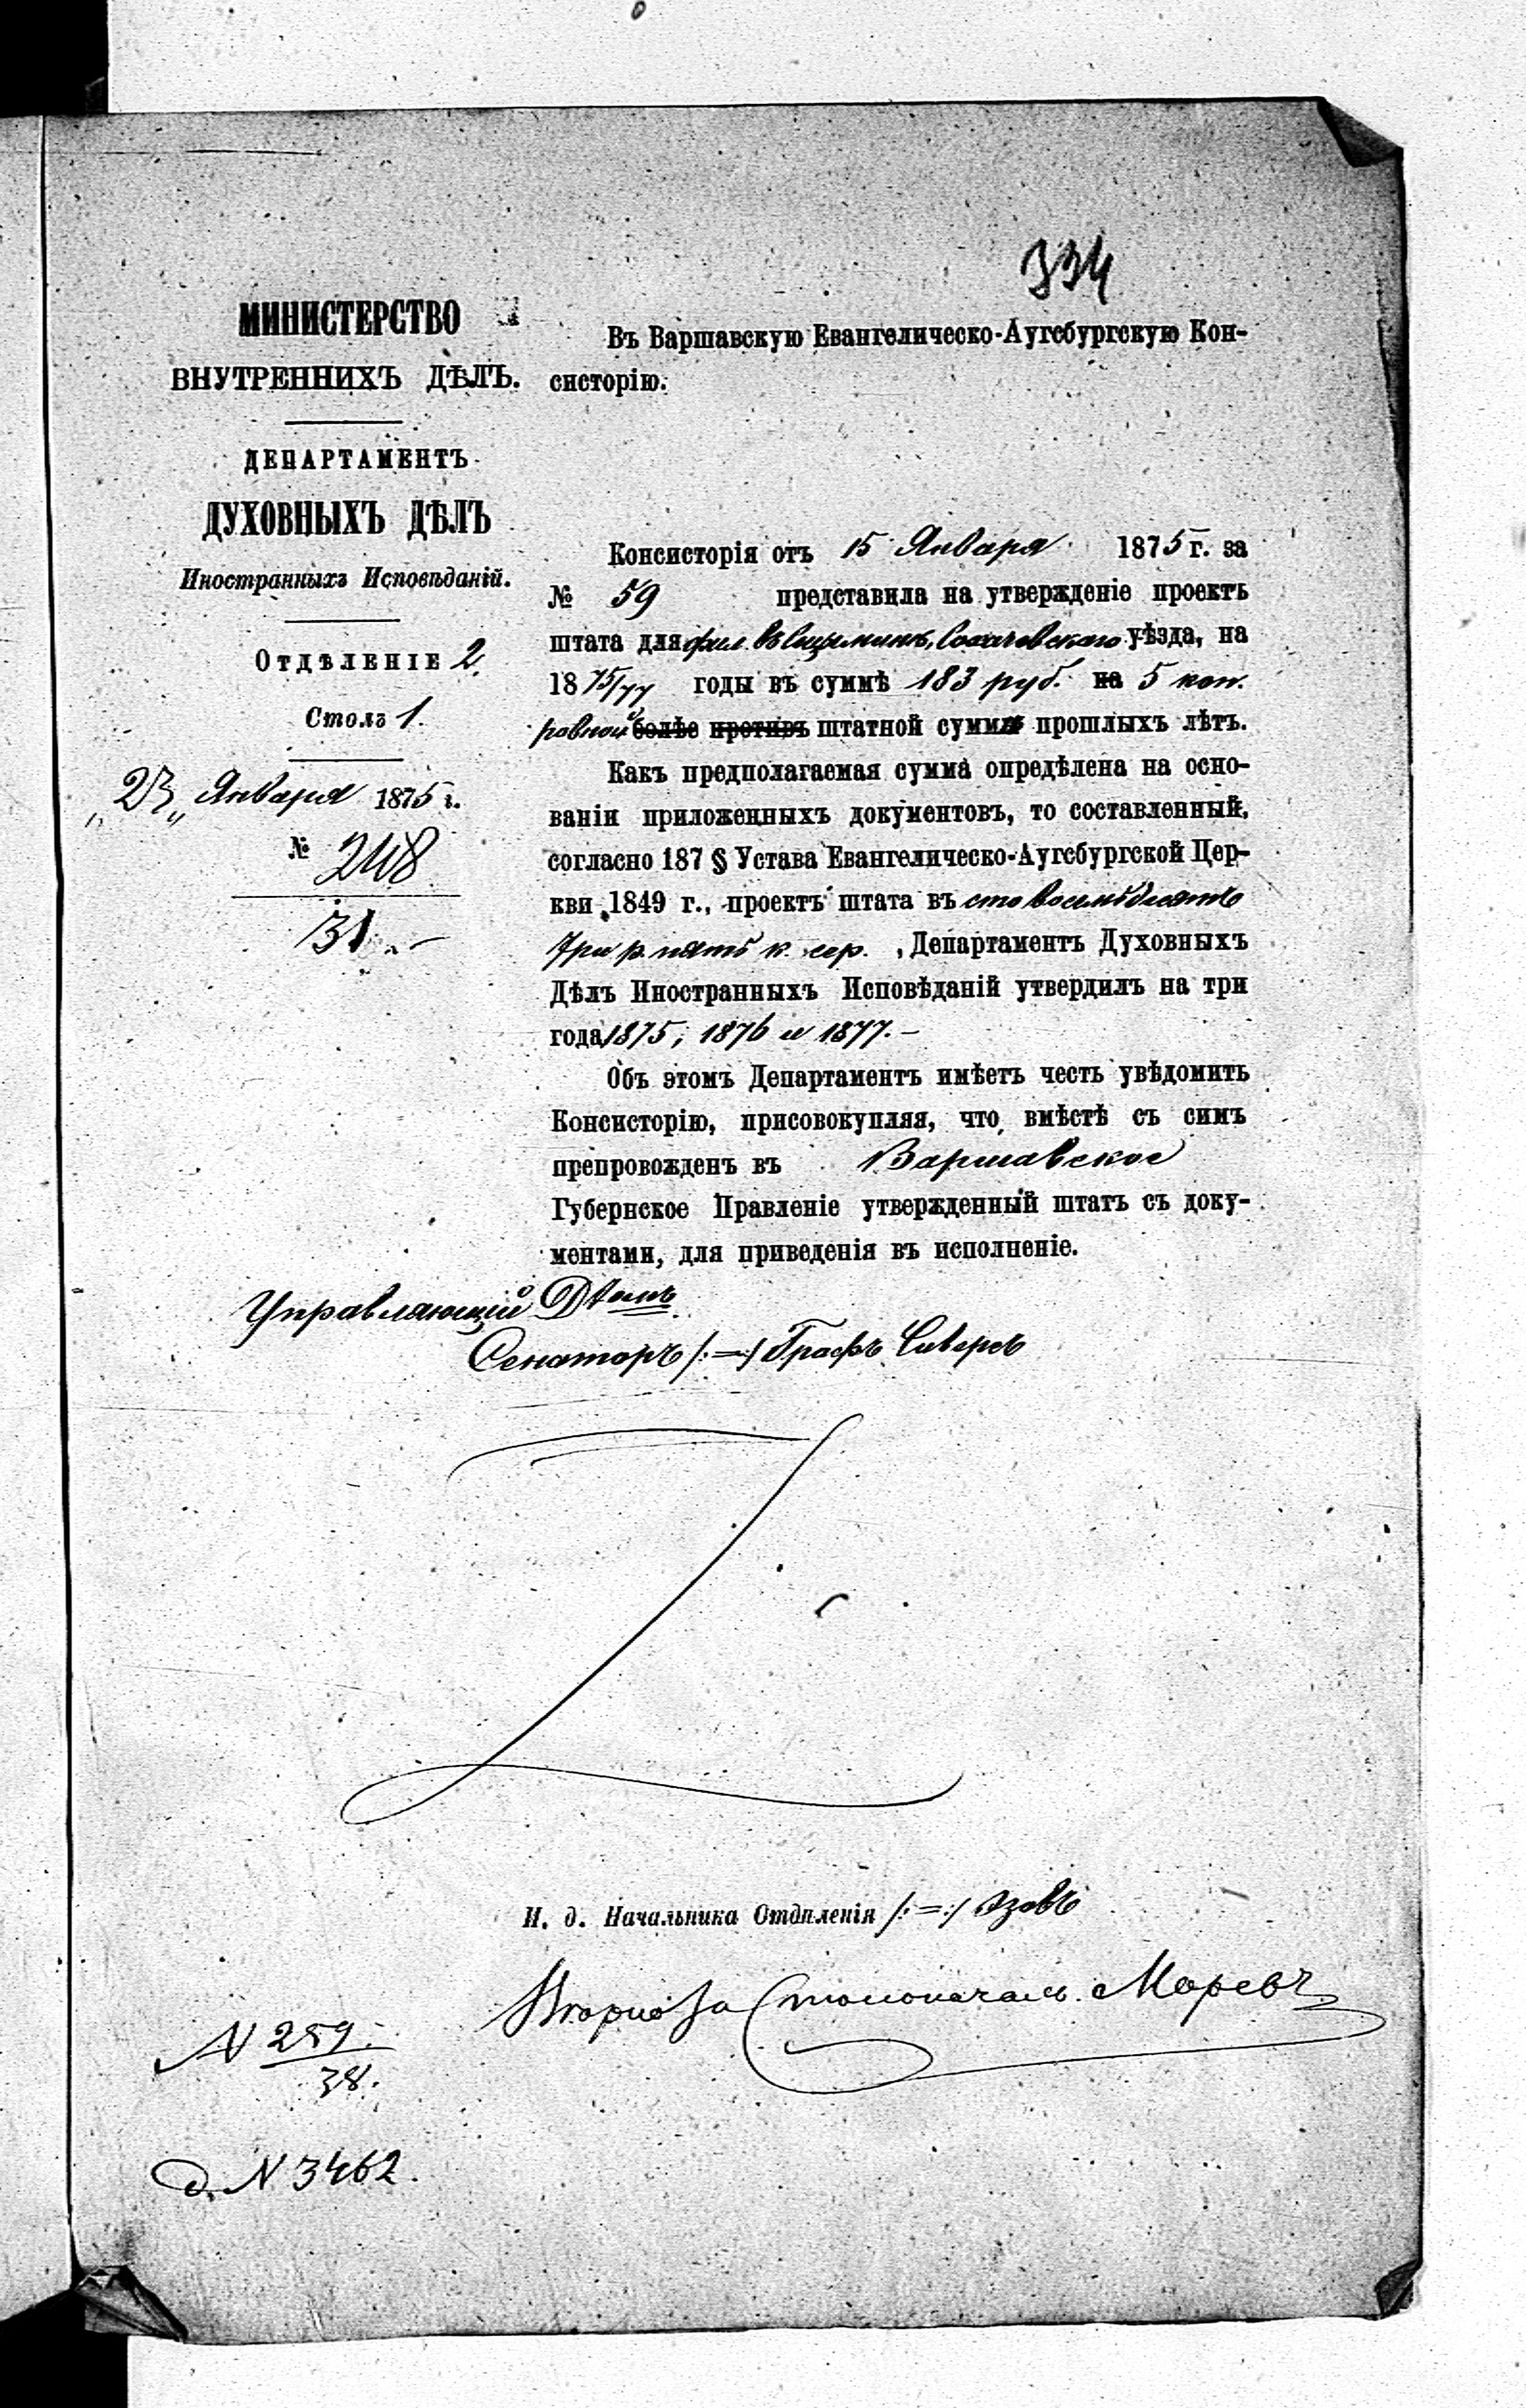 334
МИНИСТЕРСТВО
ВНУТРЕННИХЪ ДѢЛЪ.
ДЕПАРТАМЕНТЪ
ДУХОВНЫХЪ ДѢЛЪ
Иностранныхъ Исповѣданій.
Отдѣленіе 2.
Столъ 1.
„23„ Января 1875 г.
№ 248
31
Въ Варшавскую Евангелическо-Аугсбургскую Кон-
систорію.
Консисторія отъ 15 Января 1875 г. за
№ 59 представила на утвержденіе проектъ
штата для фил. Сохачевскаго уѣзда, на
1875/77 годы въ суммѣ 183 руб. на 5 коп.
равной болѣе противъ штатной суммѣ прошлыхъ лѣтъ.
Какъ предполагаемая сумма опредѣлена на осно-
ваніи приложенныхъ документовъ, то составленный,
согласно 187 § Устава Евангелическо-Аугсбургской Цер-
кви 1849 г., проектъ штата въ сто восемьдесятъ
три р. пять к. сер., Департаментъ Духовныхъ
Дѣлъ Иностранныхъ Исповѣданій утвердилъ на три
года 1875, 1876 и 1877.—
Объ этомъ Департаментъ имѣетъ честь увѣдомить
Консисторію, присовокупляя, что вмѣстѣ съ симъ
препровожденъ въ Варшавское
Губернское Правленіе утвержденный штатъ съ доку-
ментами, для приведенія въ исполненіе.
Управляющій
Сенаторъ /:=:/ Графъ Сиверсъ
И. д. Начальника Отдѣленія /:=:/ Язовъ
Вѣрно: За Столоначальн. Моревъ
N 259.
38.
д. N 3462.